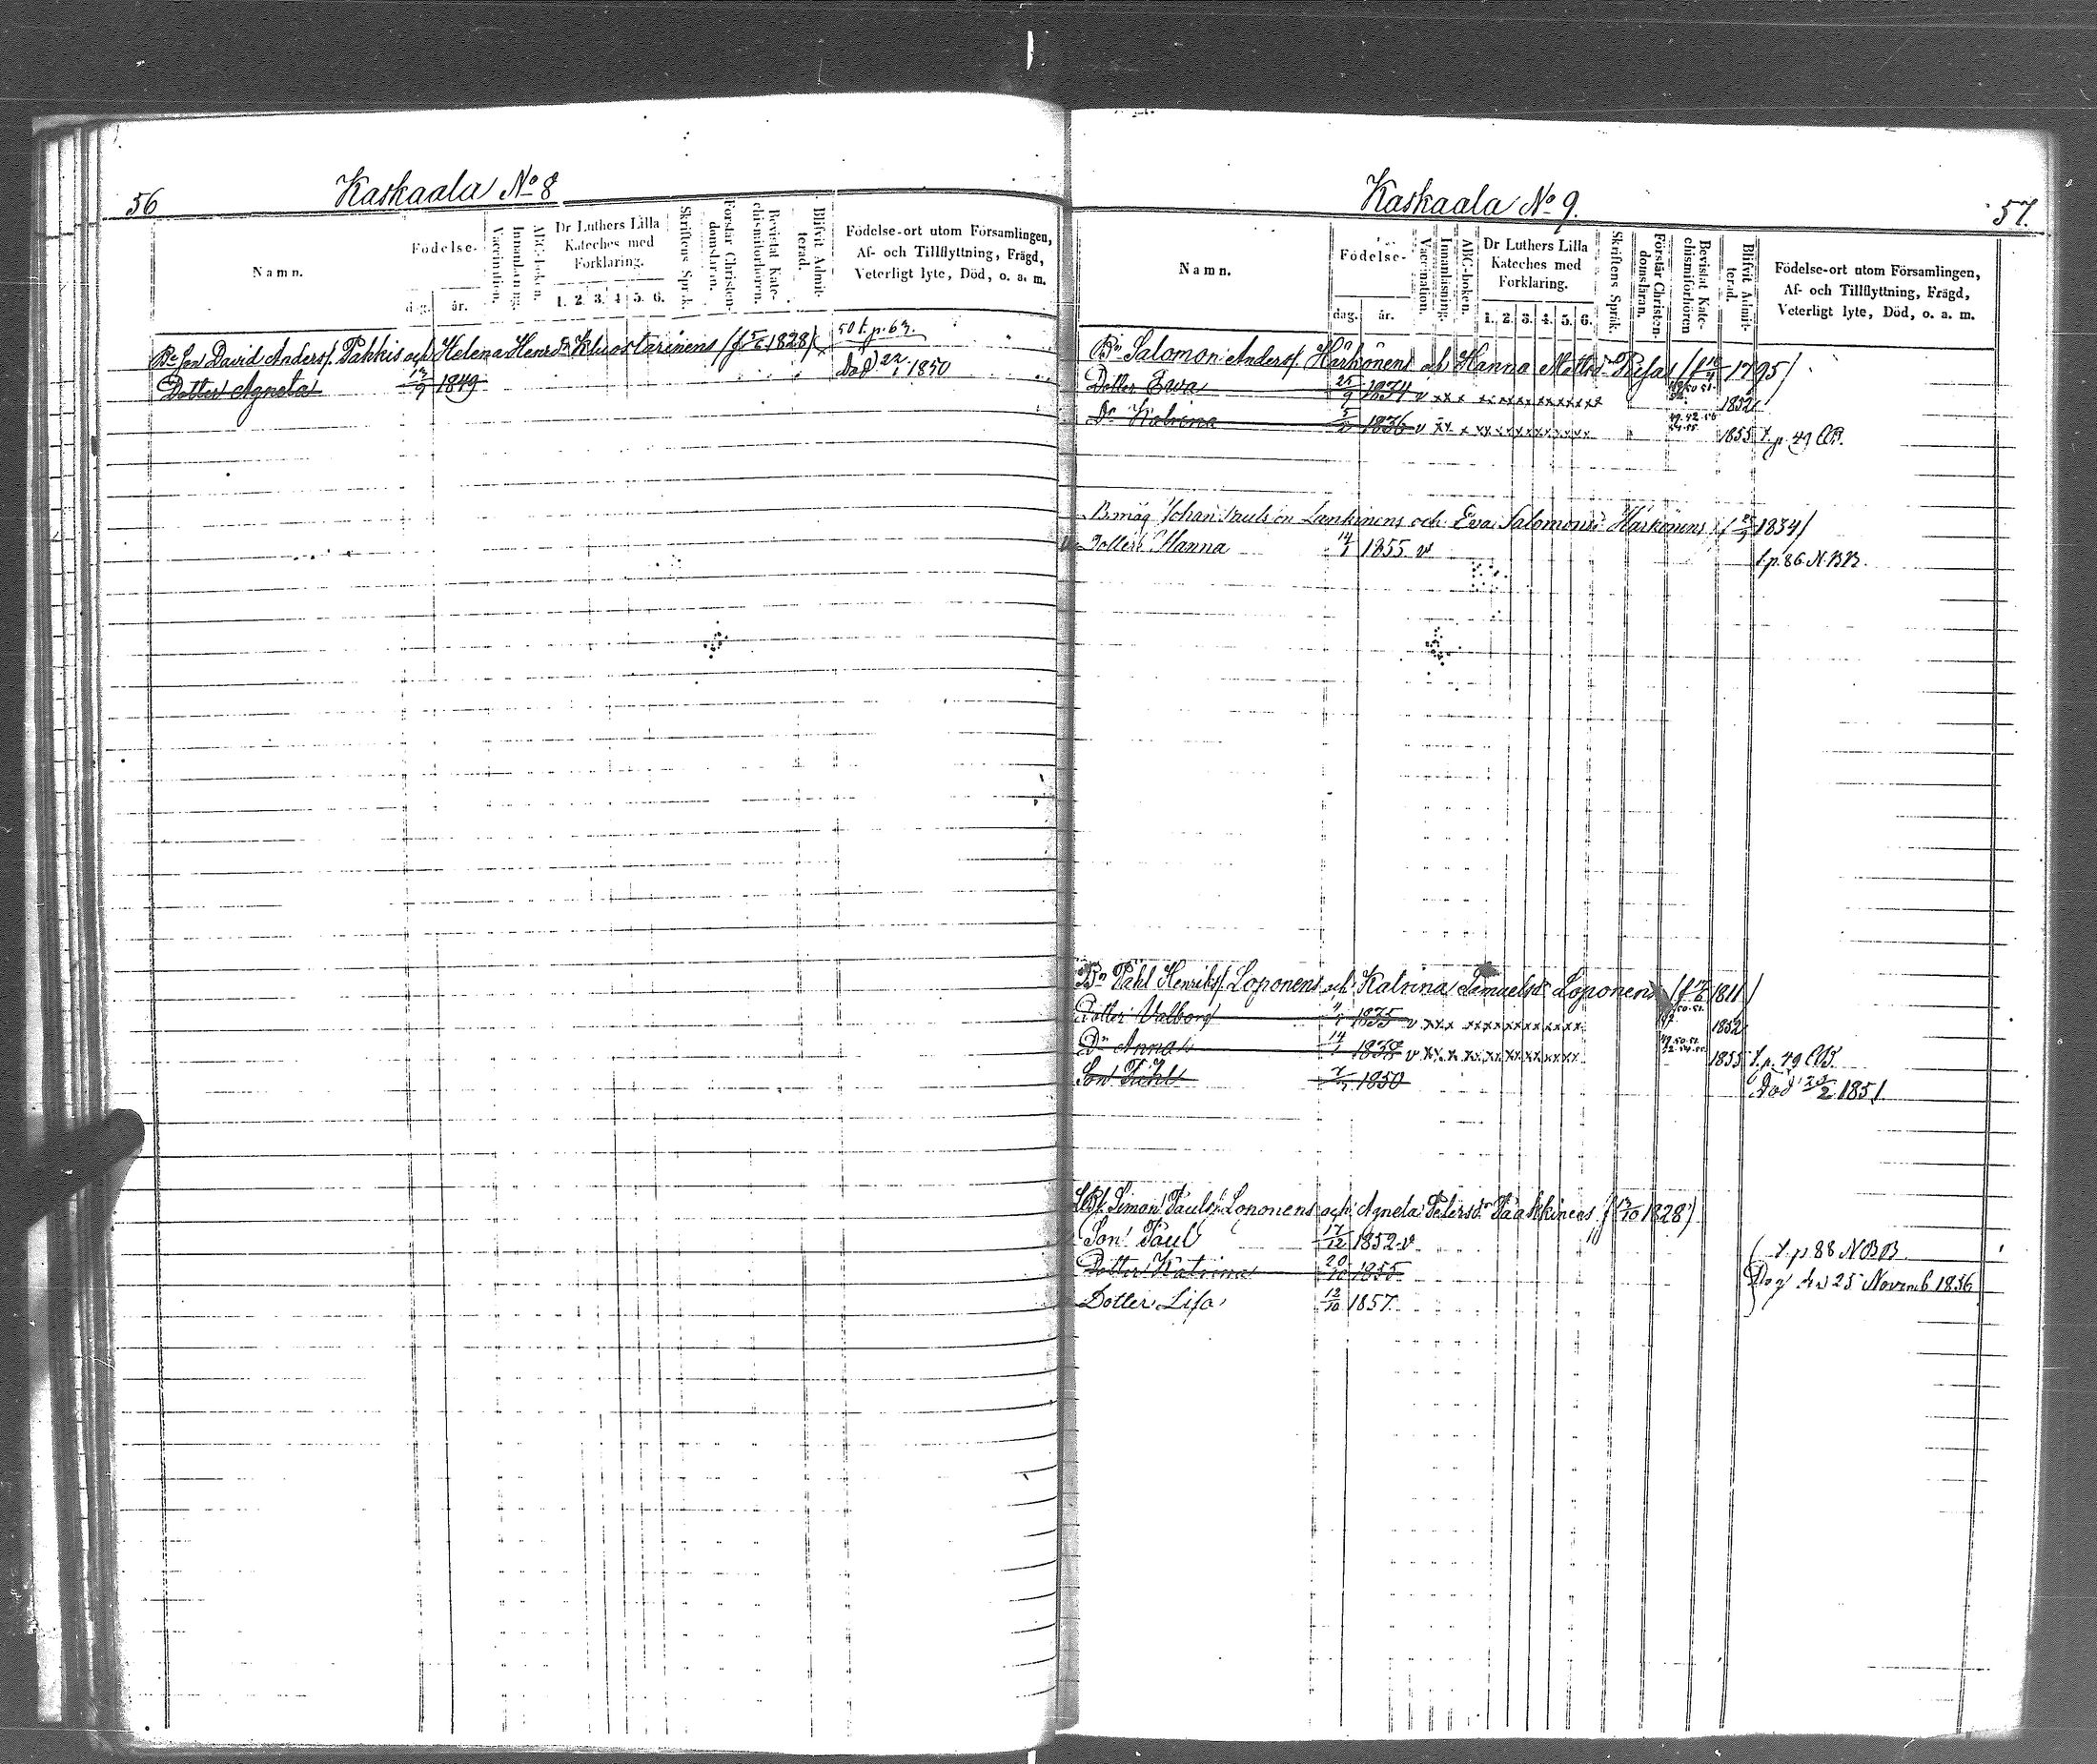 56
Kaskaala No 8
Namn.
Födelse-
dag.
år.
Vaccination.
Innanläsning.
ABC-boken.
Dr Luthers Lilla
Kateches med
Förklaring.
1. 2. 3. 4. 5. 6.
Skriftens Språk.
Förstår Christen-
domsläran.
Bevistat Kate-
chismiförhören.
Blifvit Admit-
terad.
Födelse-ort utom Församlingen,
Af- och Tillflyttning, Frägd,
Veterligt lyte, Död, o. a. m.
Bde Son David Anders. Pakkis och Helena Henrsdr Kluostarinens (f. 5/6 1828)
50 t. p. 63.
Dotter Agneta 1849
död 22/1 1850
57.
Kaskaala No 9.
Namn.
Födelse-
dag.
år.
Vaccination.
Innanläsning.
ABC-boken.
Dr Luthers Lilla
Kateches med
Förklaring.
1. 2. 3. 4. 5. 6.
Skriftens Språk.
Förstår Christen-
domsläran.
Bevistat Kate-
chismiförhören
Blifvit Admit-
terad.
Födelse-ort utom Församlingen,
Af- och Tillflyttning, Frägd,
Veterligt lyte, Död, o. a. m.
Bn Salomon Anders. Härkönens och Hanna Mattsdr 1795)
Dotter Ewa 25/9 1834 v xxx xxxxxxxxxxxx 1852
Dr Katrina 1836 v xx x xxxxxxxxxxxx 1855 t. p. 49 CB.
Bmåg Johan Paulson Lankinens och Eva Salomonsdr Härkönens 1834)
Dotter Hanna 14/1 1855 v t. p. 86 N.BB.
Bn Påhl Henriks. Loponens och Katrina Samuelsdr Loponens 1811)
Dotter Valborg 1835 v xxx xxxxxxxxxxxx 1852
Dr Anna 14/1 v xx x xxxxxxxxxxxx 1855 t. p. 49 CB.
Son Påhl 1850 död 1851
Simon Pauls. Loponens och Agneta Petersdr Paakkinens 1828)
Son Paul 17/12 1852 v t. p. 88 NBB
Dotter Katrina 20/10 1855 Dog den 25 Novemb 1856
Dotter Lisa 12/10 1857.